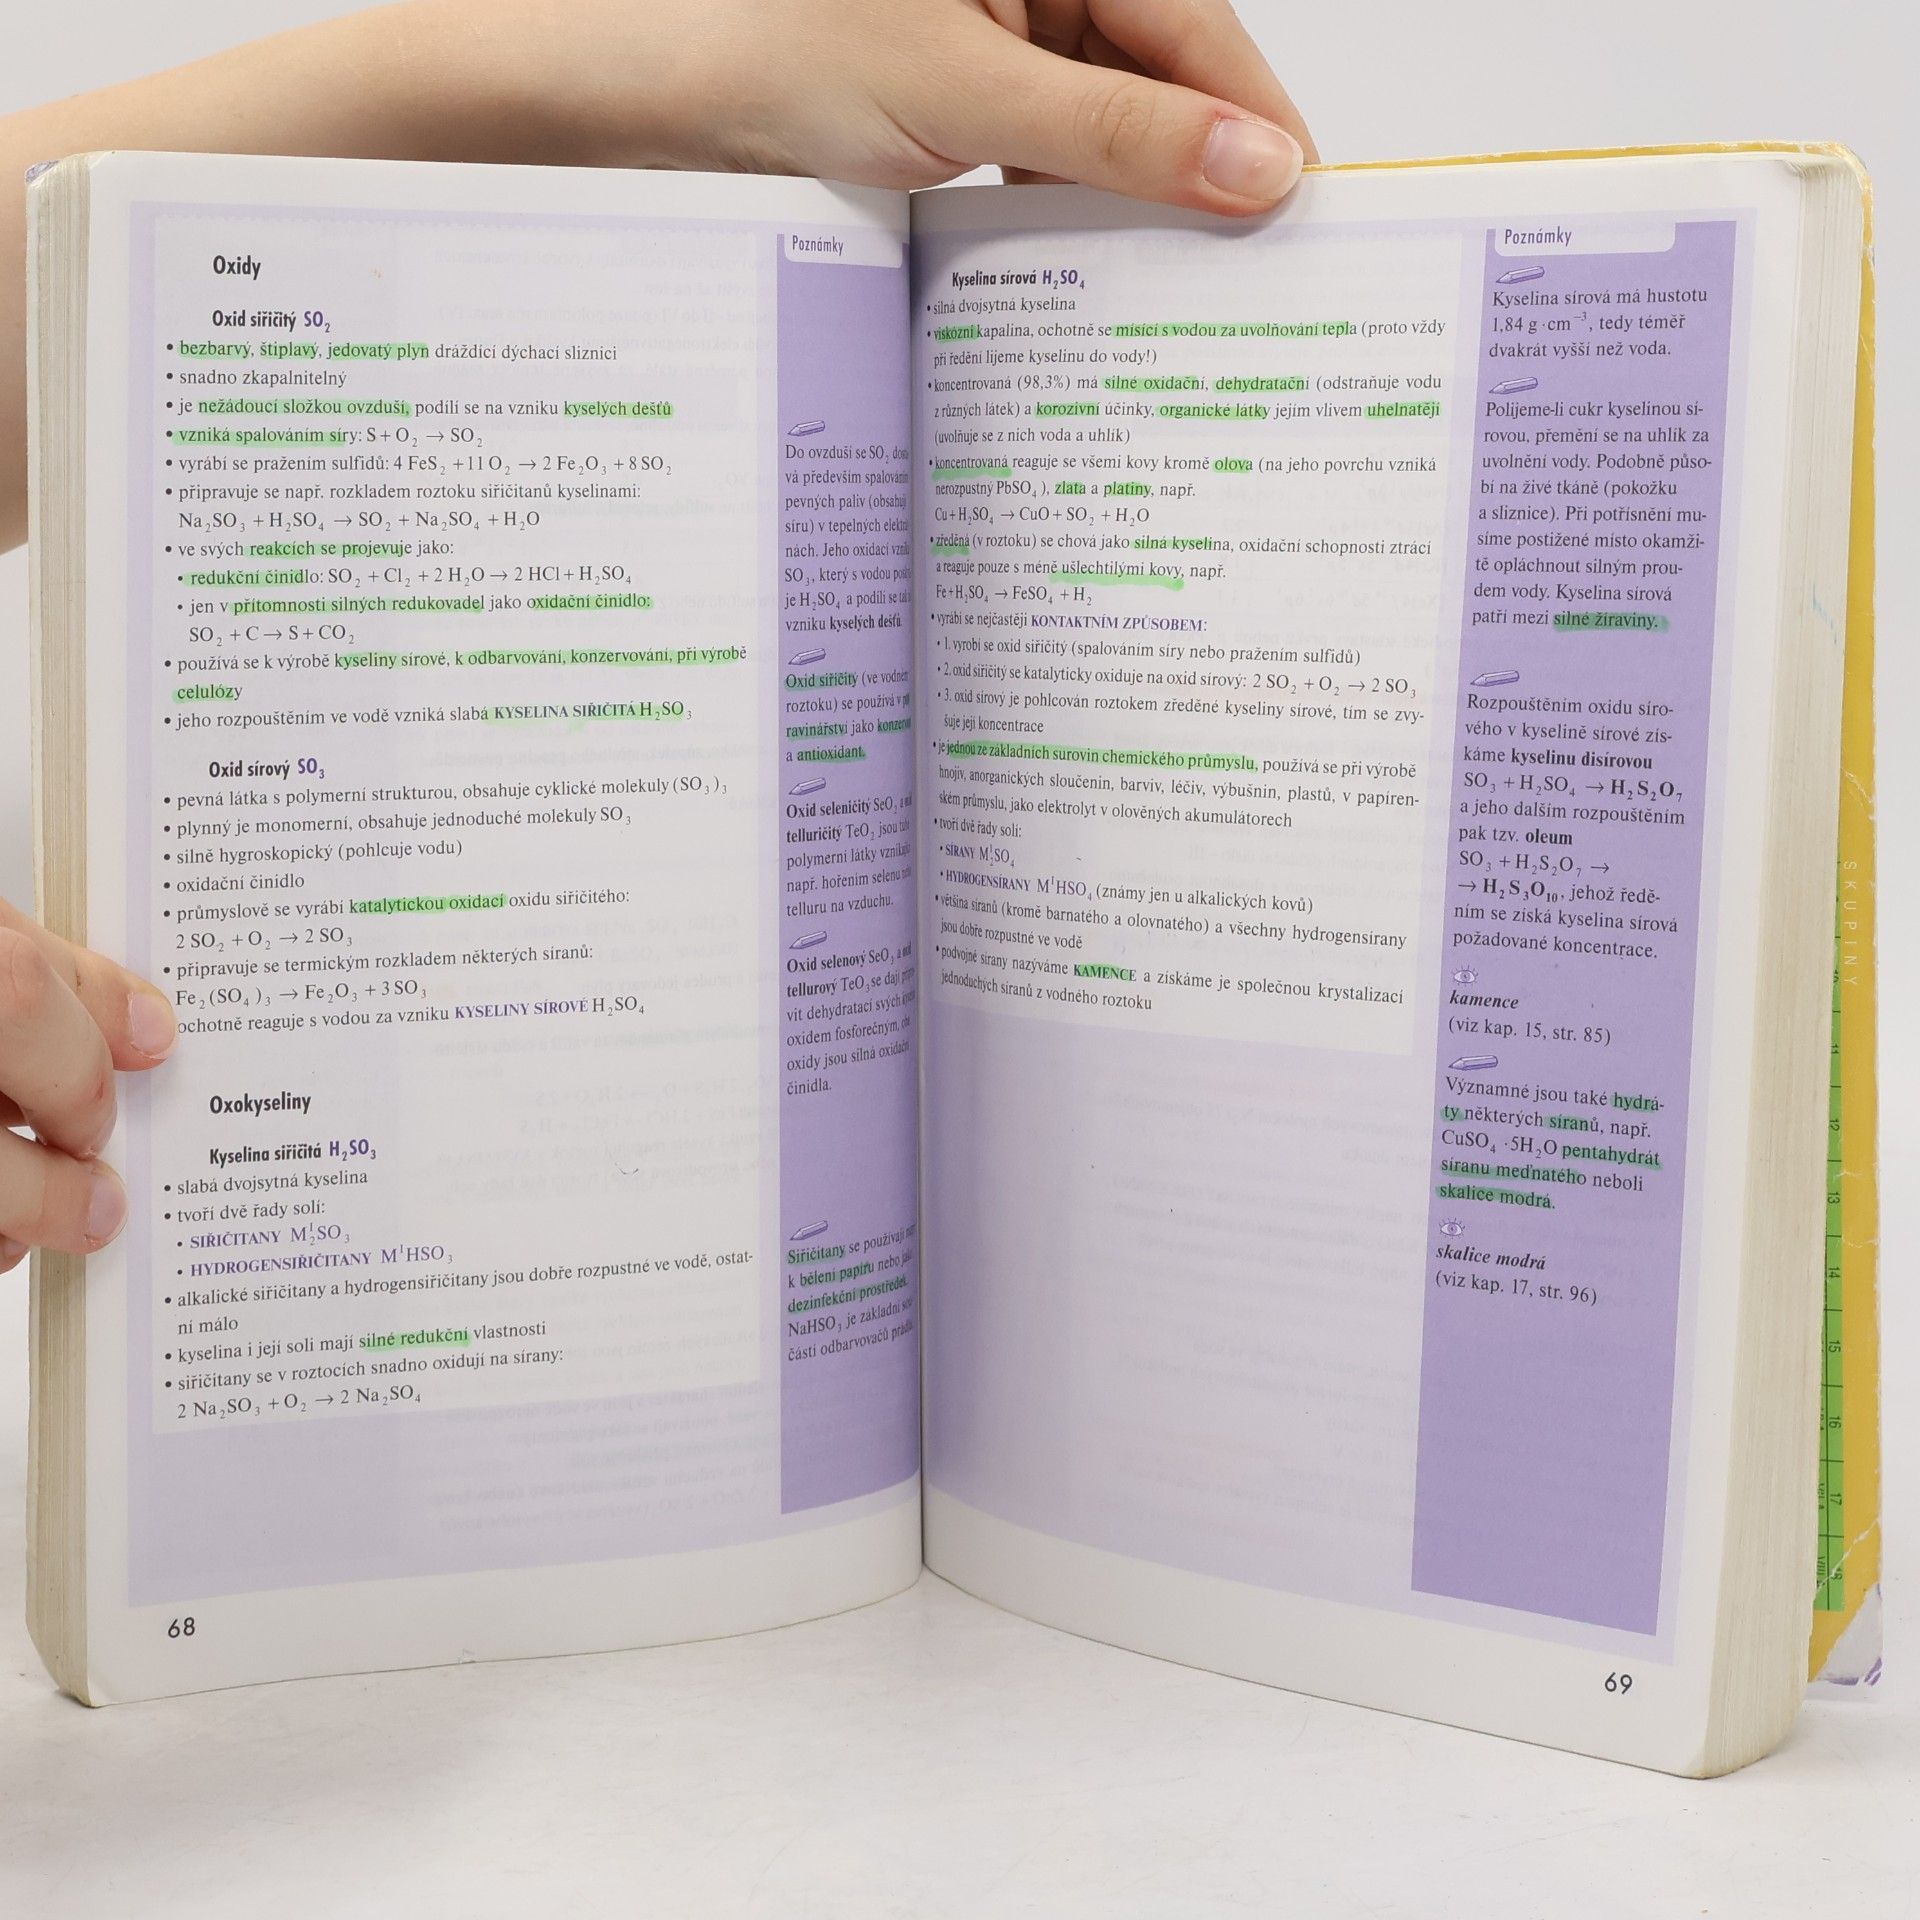 Oxidy
Oxid siřičitý SO₂
• bezbarvý, štiplavý, jedovatý plyn dráždící dýchací sliznici
• snadno zkapalnitelný
• je nežádoucí složkou ovzduší, podílí se na vzniku kyselých dešťů
• vzniká spalováním síry: S + O₂ → SO₂
• vyrábí se pražením sulfidů: 4 FeS₂ + 11 O₂ → 2 Fe₂O₃ + 8 SO₂
• připravuje se např. rozkladem roztoku siřičitanů kyselinami:
Na₂SO₃ + H₂SO₄ → SO₂ + Na₂SO₄ + H₂O
• ve svých reakcích se projevuje jako:
• redukční činidlo: SO₂ + Cl₂ + 2 H₂O → 2 HCl + H₂SO₄
• jen v přítomnosti silných redukovadel jako oxidační činidlo:
SO₂ + C → S + CO₂
• používá se k výrobě kyseliny sírové, k odbarvování, konzervování, při výrobě
celulózy
• jeho rozpouštěním ve vodě vzniká slabá KYSELINA SIŘIČITÁ H₂SO₃
Oxid sírový SO₃
• pevná látka s polymerní strukturou, obsahuje cyklické molekuly (SO₃)₃
• plynný je monomerní, obsahuje jednoduché molekuly SO₃
• silně hygroskopický (pohlcuje vodu)
• oxidační činidlo
• průmyslově se vyrábí katalytickou oxidací oxidu siřičitého:
2 SO₂ + O₂ → 2 SO₃
• připravuje se termickým rozkladem některých síranů:
Fe₂(SO₄)₃ → Fe₂O₃ + 3 SO₃
ochotně reaguje s vodou za vzniku KYSELINY SÍROVÉ H₂SO₄
Oxokyseliny
Kyselina siřičitá H₂SO₃
• slabá dvojsytná kyselina
• tvoří dvě řady solí:
• SIŘIČITANY Mᴵ₂SO₃
• HYDROGENSIŘIČITANY MᴵHSO₃
• alkalické siřičitany a hydrogensiřičitany jsou dobře rozpustné ve vodě, ostat-
ní málo
• kyselina i její soli mají silné redukční vlastnosti
• siřičitany se v roztocích snadno oxidují na sírany:
2 Na₂SO₃ + O₂ → 2 Na₂SO₄
68
Poznámky
Do ovzduší se SO₂
vá především spalováním
pevných paliv (obsahují
síru) v tepelných
nách. Jeho oxidací
SO₃, který s vodou
je H₂SO₄ a podílí se
vzniku kyselých dešťů.
Oxid siřičitý (ve vodném
roztoku) se používá v
ravinářství jako
a antioxidant.
Oxid seleničitý SeO₂ a
telluričitý TeO₂ jsou
polymerní látky vznikající
např. hořením selenu
telluru na vzduchu.
Oxid selenový SeO₃ a
tellurový TeO₃ se dají
vit dehydratací svých
oxidem fosforečným,
oxidy jsou silná oxidační
činidla.
Siřičitany se používají
k bělení papíru nebo
dezinfekční prostředek.
NaHSO₃ je základní
částí odbarvovačů prádla.
Kyselina sírová H₂SO₄
• silná dvojsytná kyselina
• viskózní kapalina, ochotně se mísící s vodou za uvolňování tepla (proto vždy
při ředění lijeme kyselinu do vody!)
• koncentrovaná (98,3%) má silné oxidační, dehydratační (odstraňuje vodu
z různých látek) a korozivní účinky, organické látky jejím vlivem uhelnatějí
(uvolňuje se z nich voda a uhlík)
• koncentrovaná reaguje se všemi kovy kromě olova (na jeho povrchu vzniká
nerozpustný PbSO₄), zlata a platiny, např.
Cu + H₂SO₄ → CuO + SO₂ + H₂O
• zředěná (v roztoku) se chová jako silná kyselina, oxidační schopnosti ztrácí
a reaguje pouze s méně ušlechtilými kovy, např.
Fe + H₂SO₄ → FeSO₄ + H₂
• vyrábí se nejčastěji KONTAKTNÍM ZPŮSOBEM:
• 1. vyrobí se oxid siřičitý (spalováním síry nebo pražením sulfidů)
• 2. oxid siřičitý se katalyticky oxiduje na oxid sírový: 2 SO₂ + O₂ → 2 SO₃
• 3. oxid sírový je pohlcován roztokem zředěné kyseliny sírové, tím se zvy-
šuje její koncentrace
• je jednou ze základních surovin chemického průmyslu, používá se při výrobě
hnojiv, anorganických sloučenin, barviv, léčiv, výbušnin, plastů, v papíren-
ském průmyslu, jako elektrolyt v olověných akumulátorech
• tvoří dvě řady solí:
• SÍRANY Mᴵ₂SO₄
• HYDROGENSÍRANY MᴵHSO₄ (známy jen u alkalických kovů)
• většina síranů (kromě barnatého a olovnatého) a všechny hydrogensírany
jsou dobře rozpustné ve vodě
• podvojné sírany nazýváme KAMENCE a získáme je společnou krystalizací
jednoduchých síranů z vodného roztoku
Poznámky
Kyselina sírová má hustotu
1,84 g·cm⁻³, tedy téměř
dvakrát vyšší než voda.
Polijeme-li cukr kyselinou sí-
rovou, přemění se na uhlík za
uvolnění vody. Podobně půso-
bí na živé tkáně (pokožku
a sliznice). Při potřísnění mu-
síme postižené místo okamži-
tě opláchnout silným prou-
dem vody. Kyselina sírová
patří mezi silné žíraviny.
Rozpouštěním oxidu síro-
vého v kyselině sírové zís-
káme kyselinu disírovou
SO₃ + H₂SO₄ → H₂S₂O₇
a jeho dalším rozpouštěním
pak tzv. oleum
SO₃ + H₂S₂O₇ →
→ H₂S₃O₁₀, jehož ředě-
ním se získá kyselina sírová
požadované koncentrace.
kamence
(viz kap. 15, str. 85)
Významné jsou také hydrá-
ty některých síranů, např.
CuSO₄ · 5H₂O pentahydrát
síranu měďnatého neboli
skalice modrá.
skalice modrá
(viz kap. 17, str. 96)
69
SKUPINY
11
12
13
14
15
16
17
18